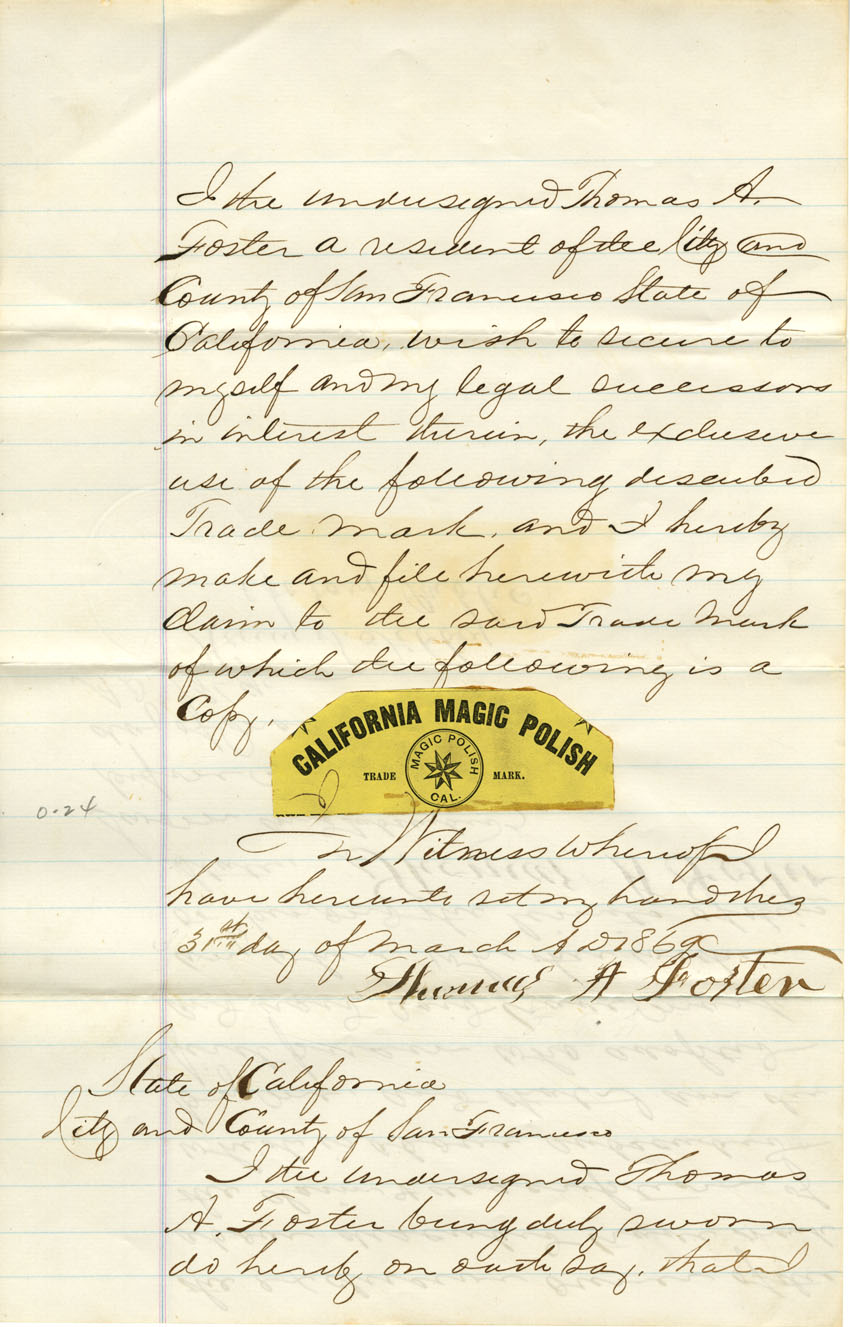 I the undersigned Thomas A.
Foster a resident of the City and
County of San Francisco State of
California, wish to secure to
myself and my legal successors
in interest therein, the exclusive
use of the following described
Trade mark, and I hereby
make and file herewith my
Claim to the said Trade Mark
of which the following is a
Copy.
CALIFORNIA MAGIC POLISH
TRADE MARK.
MAGIC POLISH
CAL.
0-24
In Witness Whereof I
have hereunto set my hand this
31st day of March A D 1869
Thomas A Foster
State of California
City and County of San Francisco
I the undersigned Thomas
A. Foster being duly sworn
do hereby on oath say, that I